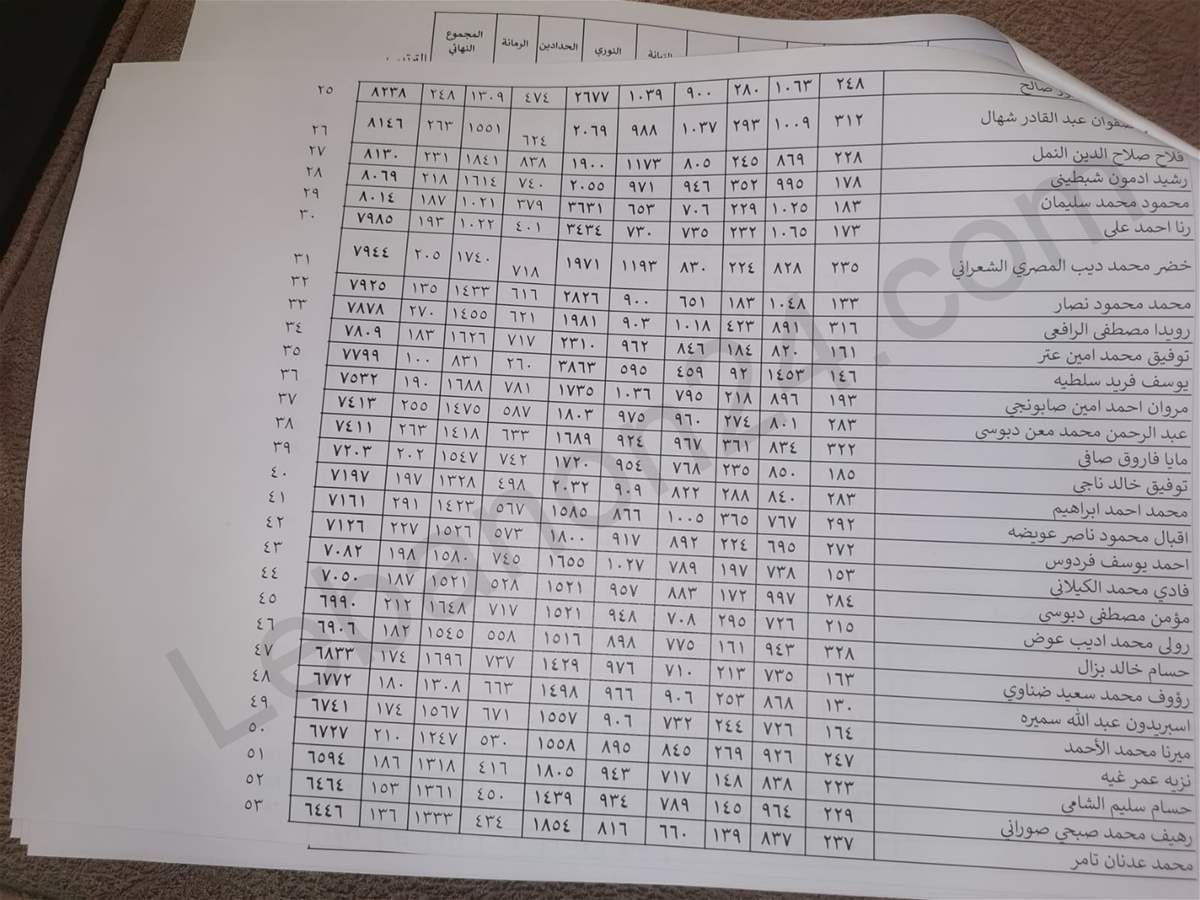 النوري الحدادين الرمانة المجموع النهائي
صالح ٢٤٨ ١٠٦٣ ٢٨٠ ٩٠٠ ١٠٣٩ ٢٦٧٧ ٤٧٤ ١٣٠٩ ٢٤٨ ٨٢٣٨ ٢٥
صفوان عبد القادر شهال ٣١٢ ١٠٠٩ ٢٩٣ ١٠٣٧ ٩٨٨ ٢٠٦٩ ٦٢٤ ١٥٥١ ٢٦٣ ٨١٤٦ ٢٦
فلاح صلاح الدين النمل ٢٢٨ ٨٦٩ ٢٤٥ ٨٠٥ ١١٧٣ ١٩٠٠ ٨٣٨ ١٨٤١ ٢٣١ ٨١٣٠ ٢٧
رشيد ادمون شبطيني ١٧٨ ٩٩٥ ٣٥٢ ٩٤٦ ٩٧١ ٢٠٥٥ ٧٤٠ ١٦١٤ ٢١٨ ٨٠٦٩ ٢٨
محمود محمد سليمان ١٨٣ ١٠٢٥ ٢٢٩ ٧٠٦ ٦٥٣ ٣٦٣١ ٣٧٩ ١٠٢١ ١٨٧ ٨٠١٤ ٢٩
رنا احمد علي ١٧٣ ١٠٦٥ ٢٣٢ ٧٣٥ ٧٣٠ ٣٤٣٤ ٤٠١ ١٠٢٢ ١٩٣ ٧٩٨٥ ٣٠
خضر محمد ديب المصري الشعراني ٢٣٥ ٨٢٨ ٢٢٤ ٨٣٠ ١١٩٣ ١٩٧١ ٧١٨ ١٧٤٠ ٢٠٥ ٧٩٤٤ ٣١
محمد محمود نصار ١٣٣ ١٠٤٨ ١٨٣ ٦٥١ ٩٠٠ ٢٨٢٦ ٦١٦ ١٤٣٣ ١٣٥ ٧٩٢٥ ٣٢
رويدا مصطفى الرافعي ٣١٦ ٨٩١ ٤٢٣ ١٠١٨ ٩٠٣ ١٩٨١ ٦٢١ ١٤٥٥ ٢٧٠ ٧٨٧٨ ٣٣
توفيق محمد امين عتر ١٦١ ٨٢٠ ١٨٤ ٨٤٦ ٩٦٢ ٢٣١٠ ٧١٧ ١٦٢٦ ١٨٣ ٧٨٠٩ ٣٤
يوسف فريد سلطيه ١٤٦ ١٤٥٣ ٩٢ ٤٥٩ ٥٩٥ ٣٨٦٣ ٢٦٠ ٨٣١ ١٠٠ ٧٧٩٩ ٣٥
مروان احمد امين صابونجي ١٩٣ ٨٩٦ ٢١٨ ٧٩٥ ١٠٣٦ ١٧٣٥ ٧٨١ ١٦٨٨ ١٩٠ ٧٥٣٢ ٣٦
عبد الرحمن محمد معن دبوسي ٢٨٣ ٨٠١ ٢٧٤ ٩٦٠ ٩٧٥ ١٨٠٣ ٥٨٧ ١٤٧٥ ٢٥٥ ٧٤١٣ ٣٧
مايا فاروق صافي ٣٢٢ ٨٣٤ ٣٦١ ٩٦٧ ٩٢٤ ١٦٨٩ ٦٣٣ ١٤١٨ ٢٦٣ ٧٤١١ ٣٨
توفيق خالد ناجي ١٨٥ ٨٥٠ ٢٣٥ ٧٦٨ ٩٥٤ ١٧٢٠ ٧٤٢ ١٥٤٧ ٢٠٢ ٧٢٠٣ ٣٩
محمد احمد ابراهيم ٢٨٣ ٨٤٠ ٢٨٨ ٨٢٢ ٩٠٩ ٢٠٣٢ ٤٩٨ ١٣٢٨ ١٩٧ ٧١٩٧ ٤٠
اقبال محمود ناصر عويضه ٢٩٢ ٧٦٧ ٣٦٥ ١٠٠٥ ٨٦٦ ١٥٨٥ ٥٦٧ ١٤٢٣ ٢٩١ ٧١٦١ ٤١
احمد يوسف فردوس ٢٧٢ ٦٩٥ ٢٢٤ ٨٩٢ ٩١٧ ١٨٠٠ ٥٧٣ ١٥٢٦ ٢٢٧ ٧١٢٦ ٤٢
فادي محمد الكيلاني ١٥٣ ٧٣٨ ١٩٧ ٧٨٩ ١٠٢٧ ١٦٥٥ ٧٤٥ ١٥٨٠ ١٩٨ ٧٠٨٢ ٤٣
مؤمن مصطفى دبوسي ٢٨٤ ٩٩٧ ١٧٢ ٨٨٣ ٩٥٧ ١٥٢١ ٥٢٨ ١٥٢١ ١٨٧ ٧٠٥٠ ٤٤
رولى محمد اديب عوض ٢١٥ ٧٢٦ ٢٩٥ ٧٠٨ ٩٤٨ ١٥٢١ ٧١٧ ١٦٤٨ ٢١٢ ٦٩٩٠ ٤٥
حسام خالد بزال ٣٢٨ ٩٤٣ ١٦١ ٧٧٥ ٨٩٨ ١٥١٦ ٥٥٨ ١٥٤٥ ١٨٢ ٦٩٠٦ ٤٦
رؤوف محمد سعيد ضناوي ١٦٣ ٧٣٥ ٢١٣ ٧١٠ ٩٧٦ ١٤٢٩ ٧٣٧ ١٦٩٦ ١٧٤ ٦٨٣٣ ٤٧
اسبريدون عبد الله سميره ١٣٠ ٨٦٨ ٢٥٣ ٩٠٦ ٩٦٦ ١٤٩٨ ٦٦٣ ١٣٠٨ ١٨٠ ٦٧٧٢ ٤٨
ميرنا محمد الأحمد ١٦٤ ٧٢٦ ٢٤٤ ٧٣٢ ٩٠٦ ١٥٥٧ ٦٧١ ١٥٦٧ ١٧٤ ٦٧٤١ ٤٩
نزيه عمر غيه ٢٤٧ ٩٢٦ ٢٦٩ ٨٤٥ ٨٩٥ ١٥٥٨ ٥٣٠ ١٢٤٧ ٢١٠ ٦٧٢٧ ٥٠
حسام سليم الشامي ٢٢٣ ٨٣٨ ١٤٨ ٧١٧ ٩٤٣ ١٨٠٥ ٤١٦ ١٣١٨ ١٨٦ ٦٥٩٤ ٥١
رهيف محمد صبحي صوراني ٢٢٩ ٩٦٤ ١٤٥ ٧٨٩ ٩٣٤ ١٤٣٩ ٤٥٠ ١٣٦١ ١٥٣ ٦٤٦٤ ٥٢
محمد عدنان تامر ٢٣٧ ٨٣٧ ١٣٩ ٦٦٠ ٨١٦ ١٨٥٤ ٤٣٤ ١٣٣٣ ١٣٦ ٦٤٤٦ ٥٣
Lebanon24.com